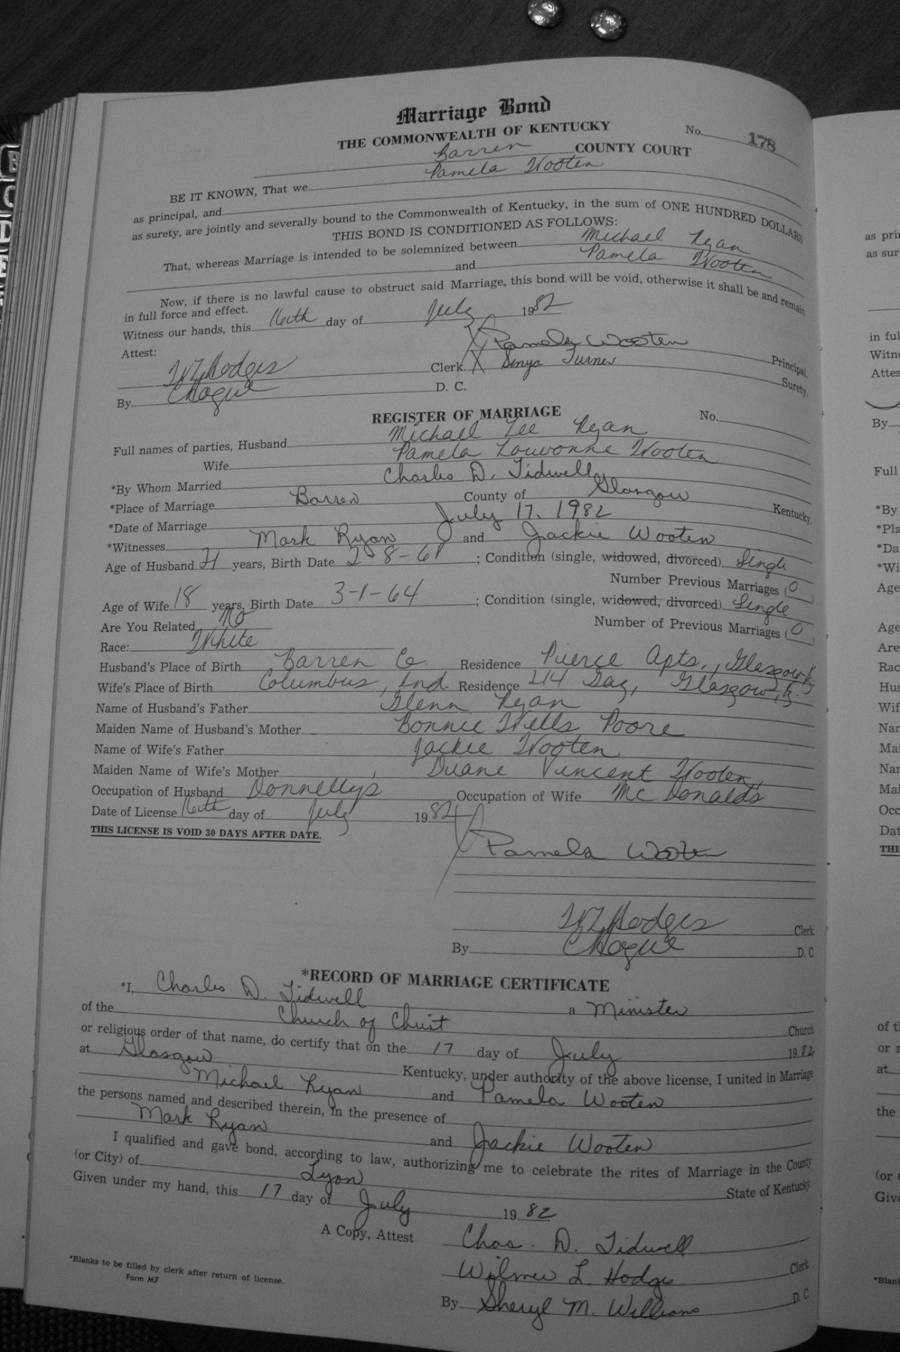 Marriage Bond
THE COMMONWEALTH OF KENTUCKY No. 178
Barren COUNTY COURT
BE IT KNOWN, That we Pamela Wooten
as principal, and
as surety, are jointly and severally bound to the Commonwealth of Kentucky, in the sum of ONE HUNDRED DOLLARS
THIS BOND IS CONDITIONED AS FOLLOWS:
That, whereas Marriage is intended to be solemnized between Michael Ryan
and Pamela Wooten
Now, if there is no lawful cause to obstruct said Marriage, this bond will be void, otherwise it shall be and remain
in full force and effect.
Witness our hands, this 16th day of July 1982
Attest: Pamela Wooten Principal,
W L Hodges Clerk X Sonya Turner Surety.
By C Hogue D. C.
REGISTER OF MARRIAGE No.
Full names of parties, Husband Michael Lee Ryan
Wife Pamela Louvonne Wooten
*By Whom Married Charles D. Tidwell
*Place of Marriage Barren County of Glasgow Kentucky
*Date of Marriage July 17, 1982
*Witnesses Mark Ryan and Jackie Wooten
Age of Husband 21 years, Birth Date 2-8-61 ; Condition (single, widowed, divorced) Single
Number Previous Marriages (0
Age of Wife 18 years, Birth Date 3-1-64 ; Condition (single, widowed, divorced) Single
Are You Related No Number of Previous Marriages (0
Race: White
Husband's Place of Birth Barren Co Residence Pierce Apts., Glasgow
Wife's Place of Birth Columbus, Ind. Residence 214 Gay, Glasgow,
Name of Husband's Father Glenn Ryan
Maiden Name of Husband's Mother Bonnie Wells Poore
Name of Wife's Father Jackie Wooten
Maiden Name of Wife's Mother Duane Vincent Wooten
Occupation of Husband Donnelly's Occupation of Wife McDonald's
Date of License 16th day of July 1982
THIS LICENSE IS VOID 30 DAYS AFTER DATE.
Pamela Wooten
W L Hodges Clerk
By C Hogue D. C
*RECORD OF MARRIAGE CERTIFICATE
*I, Charles D. Tidwell a Minister
of the Church of Christ Church
or religious order of that name, do certify that on the 17 day of July 1982
at Glasgow Kentucky, under authority of the above license, I united in Marriage
Michael Ryan and Pamela Wooten
the persons named and described therein, in the presence of
Mark Ryan and Jackie Wooten
I qualified and gave bond, according to law, authorizing me to celebrate the rites of Marriage in the County
(or City) of Lyon State of Kentucky
Given under my hand, this 17 day of July 1982
A Copy, Attest Chas. D. Tidwell
Wilmer L. Hodges Clerk
By Sheryl M. Williams D. C
*Blanks to be filled by clerk after return of license.
Form M7
as pri
as sur
in ful
Witn
Attes
By
Full
*By
*Pla
*Da
*Wi
Age
Age
Are
Rac
Hus
Wif
Nar
Mai
Nar
Mai
Occ
Dat
THI
of t
or r
at
the
(or
Give
*Blank